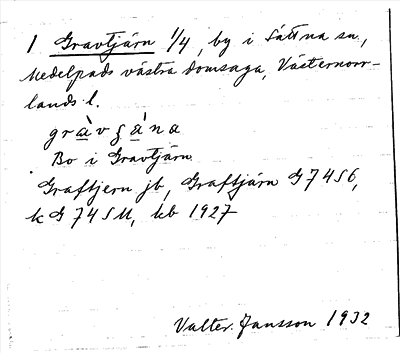 1 Gravtjärn 1/4, by i Sättna sn.,
Medelpads västra domsaga, Västernorr-
lands l.
gràvʃàna
Bo i Gravtjärn.
Graftjern jb, Graftjärn G 74 S6,
k G 74 SU, kb 1927
Valter Jansson 1932